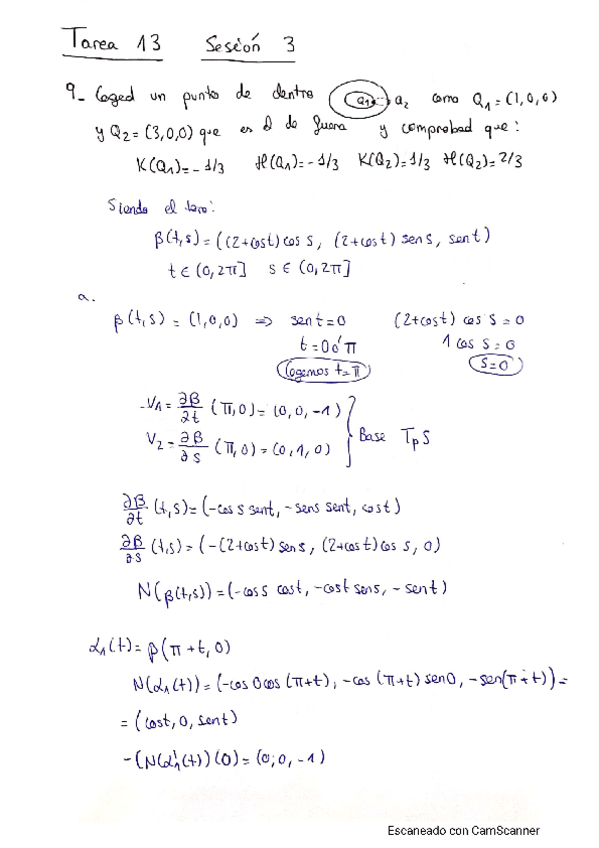 Tarea 13 Sesión 3
9_ Coged un punto de dentro a1 a2 como Q1=(1,0,0)
y Q2=(3,0,0) que es el de fuera y comprobad que:
K(Q1)=-1/3 H(Q1)=-1/3 K(Q2)=1/3 H(Q2)=2/3
Siendo el toro:
β(t,s)=((2+cost)cos s, (2+cost) sens, sent)
t∈(0,2π] s∈(0,2π]
a.
β(t,s)=(1,0,0) ⇒ sent=0 (2+cost) cos s=0
t=0 o π 1 cos s=0
Cogemos t=π s=0
V1=∂β/∂t (π,0)=(0,0,-1)
V2=∂β/∂s (π,0)=(0,1,0) Base TpS
∂β/∂t (t,s)=(-cos s sent, -sens sent, cost)
∂β/∂s (t,s)=(-(2+cost) sens, (2+cost) cos s, 0)
N(β(t,s))=(-cos s cost, -cost sens, -sent)
α1(t)=β(π+t,0)
N(α1(t))=(-cos 0 cos (π+t), -cos (π+t) sen0, -sen(π+t))=
=(cost, 0, sent)
-(N(α1'(t))(0)=(0,0,-1)
Escaneado con CamScanner